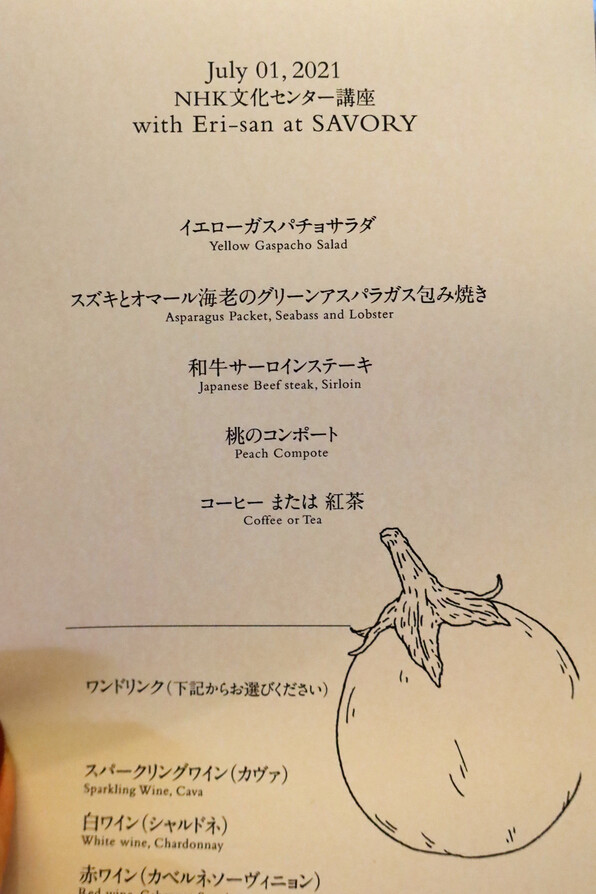 July 01, 2021
NHK文化センター講座
with Eri-san at SAVORY
イエローガスパチョサラダ
Yellow Gaspacho Salad
スズキとオマール海老のグリーンアスパラガス包み焼き
Asparagus Packet, Seabass and Lobster
和牛サーロインステーキ
Japanese Beef steak, Sirloin
桃のコンポート
Peach Compote
コーヒー または 紅茶
Coffee or Tea
ワンドリンク（下記からお選びください）
スパークリングワイン（カヴァ）
Sparkling Wine, Cava
白ワイン（シャルドネ）
White wine, Chardonnay
赤ワイン（カベルネソーヴィニョン）
Red wine,